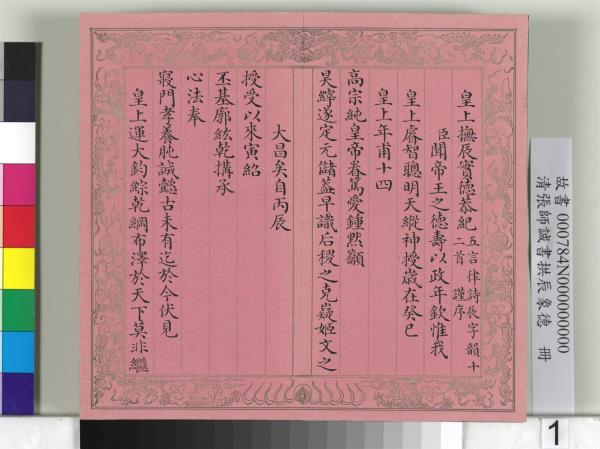 皇上撫辰賡德恭紀五言律詩辰字韻十二首 謹序
臣聞帝王之德壽以政年欽惟我
皇上睿智聰明天縱神授歲在癸巳
皇上年甫十四
高宗純皇帝眷篤愛鍾黙籲
昊縡遂定元儲蓋早識后稷之克嶷姬文之
大昌矣自丙辰
授受以來寅紹
丕基廓紘乾搆承
心法奉
寢門孝養肫誠懿古未有迄於今伏見
皇上運大鈞綜乾綱布澤於天下莫非繼
故書 000784N000000000
清張師誠書拱辰象德 冊
1